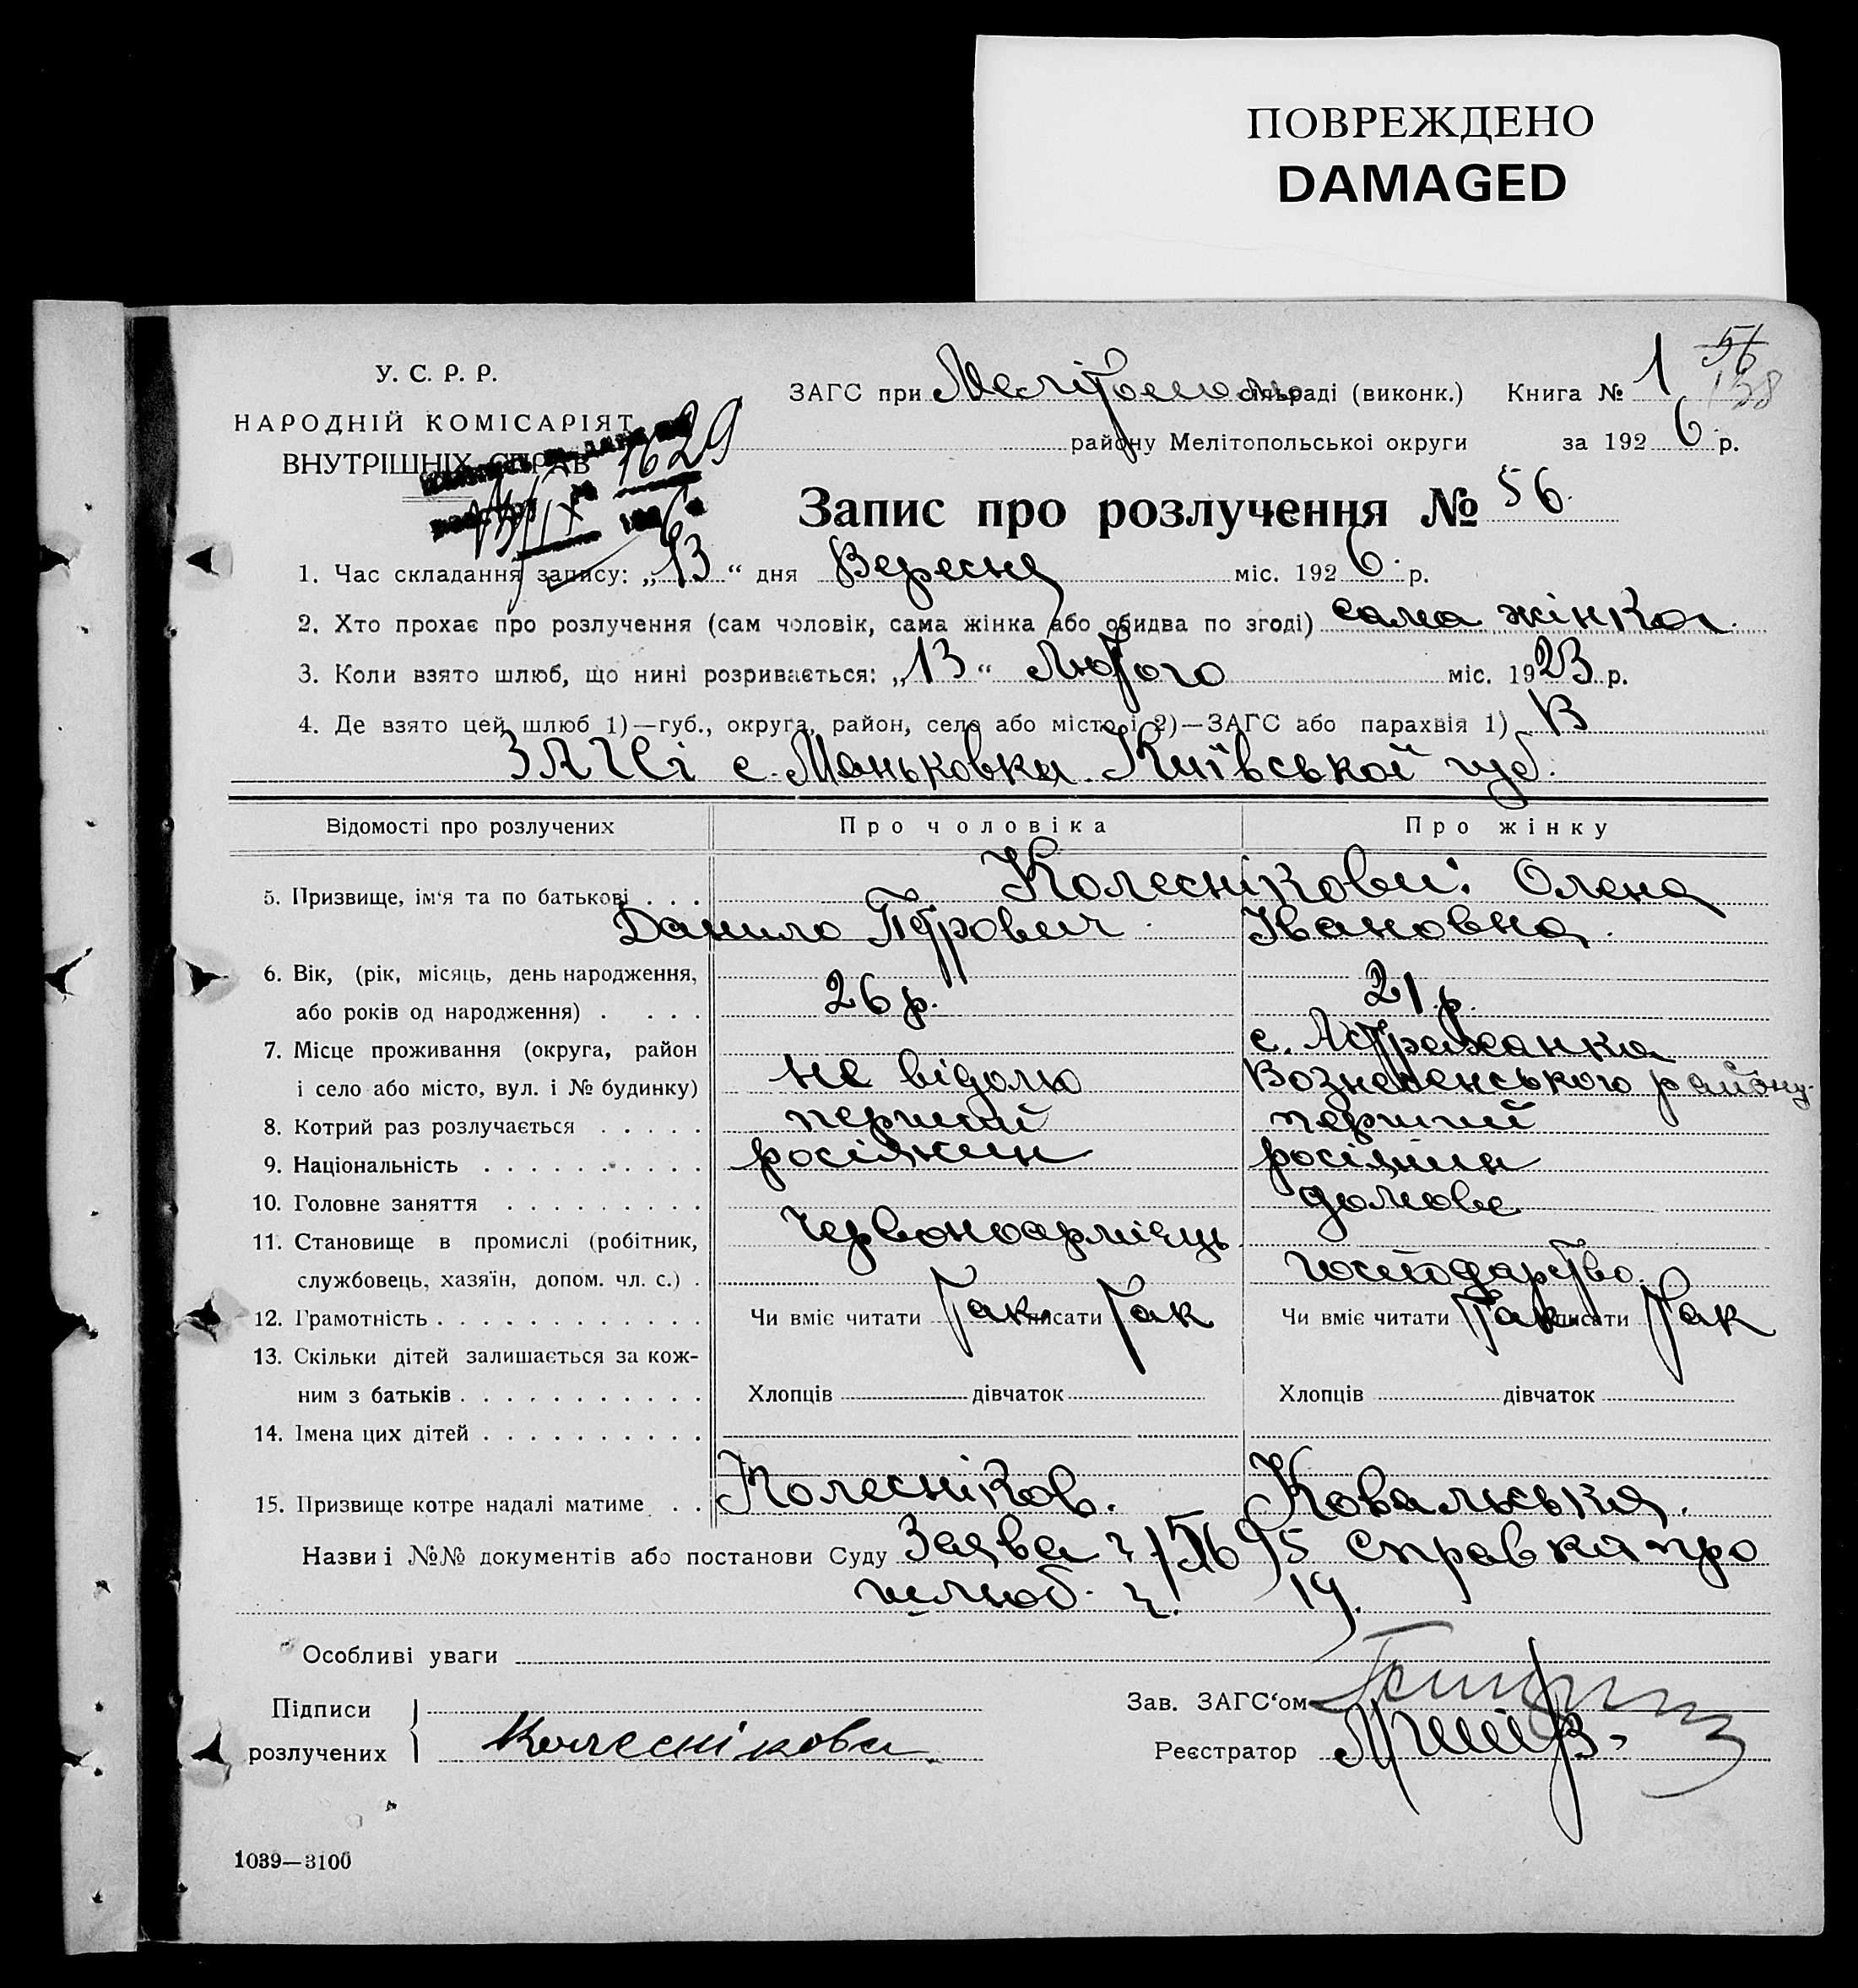 ПОВРЕЖДЕНО
DAMAGED
У. С. Р. Р.
НАРОДНІЙ КОМІСАРІЯТ
ВНУТРІШНІХ СПРАВ
1629
ЗАГС при сільраді (виконк.) Книга № 1 56 138
району Мелітопольської округи за 1926 р.
Запис про розлучення № 56.
1. Час складання запису: „13" дня Вересня міс. 1926 р.
2. Хто прохає про розлучення (сам чоловік, сама жінка або обидва по згоді) сама жінка.
3. Коли взято шлюб, що нині розривається: „13" Лютого міс. 1923 р.
4. Де взято цей шлюб 1)—губ., округа, район, село або місто і 2)—ЗАГС або парахвія 1) В
ЗАГСі с. Маньковка Київської губ.
Відомості про розлучених Про чоловіка Про жінку
5. Призвище, ім'я та по батькові . . . Колеснікови: Олена
Данило Петрович Івановна
6. Вік, (рік, місяць, день народження,
або років од народження) . . . . 26 р. 21 р.
7. Місце проживання (округа, район с. Астраханка
і село або місто, вул. і № будинку) не відомо Вознесенського району
8. Котрий раз розлучається . . . . . перший перший
9. Національність . . . . . . . . . . росіянин росіянин
10. Головне заняття . . . . . . . . . домове
11. Становище в промислі (робітник, Червоноармієць
службовець, хазяїн, допом. чл. с.) . господарство.
12. Грамотність . . . . . . . . . . . . Чи вміє читати Так писати Так Чи вміє читати Так писати Так
13. Скільки дітей залишається за кож-
ним з батьків . . . . . . . . . . . Хлопців дівчаток Хлопців дівчаток
14. Імена цих дітей . . . . . . . . . .
15. Призвище котре надалі матиме . . Колесніков. Ковальська.
Назви і №№ документів або постанови Суду Заява ч справка про
шлюб. ч. 19.
Особливі уваги
Підписи Зав. ЗАГС'ом
розлучених Колеснікова Реєстратор
1039—3100